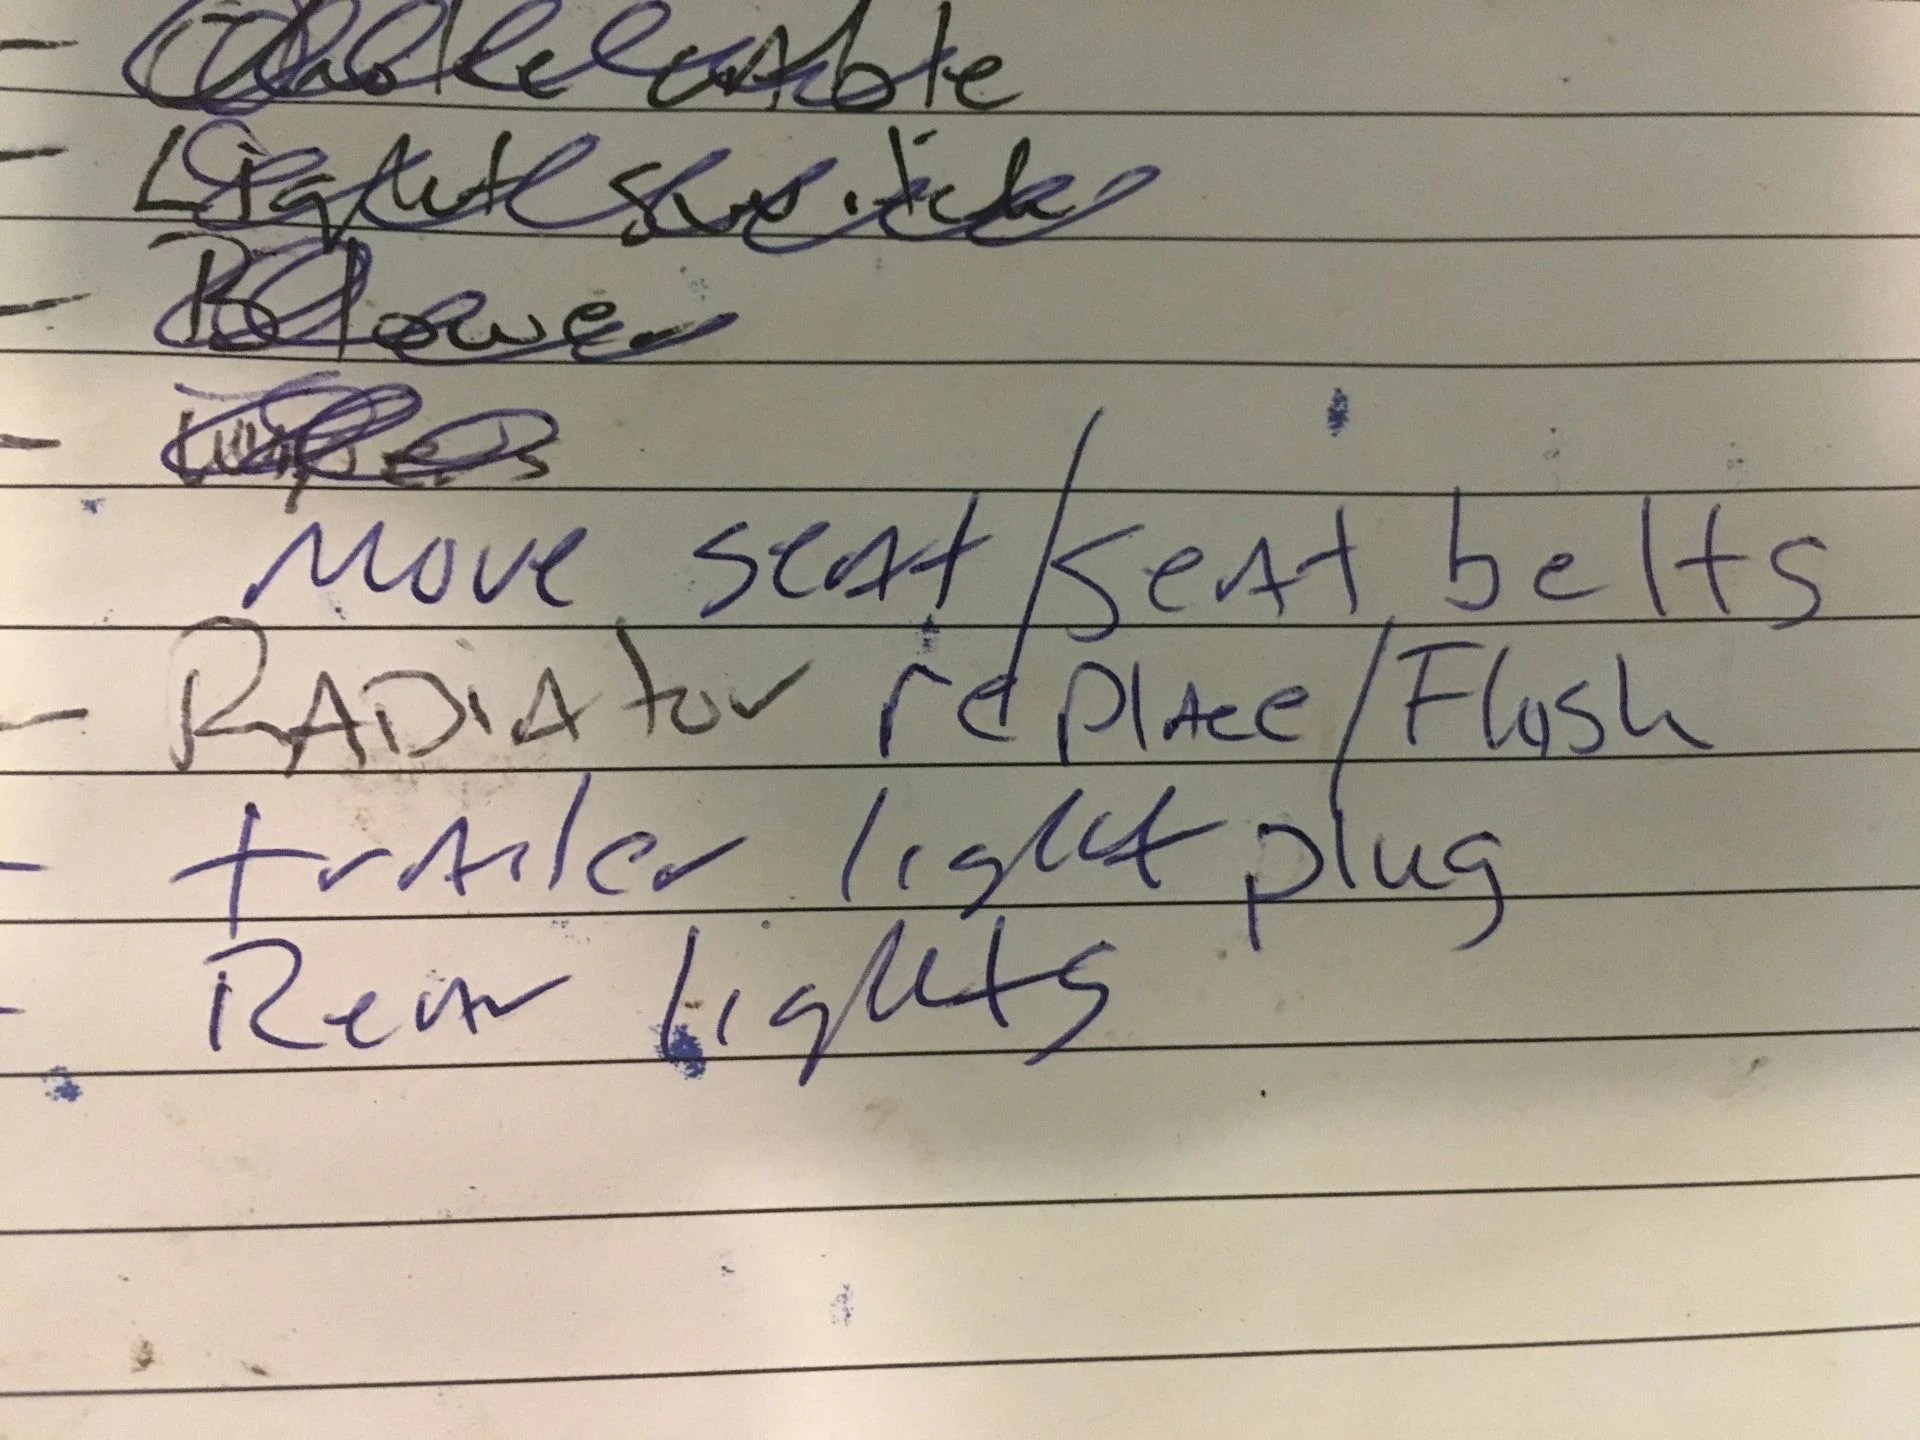 - Choke cable
- Light switch
- Blower
- Wipers
Move seat/seat belts
- RADiAtor replace/Flush
- trailer light plug
- Rear lights